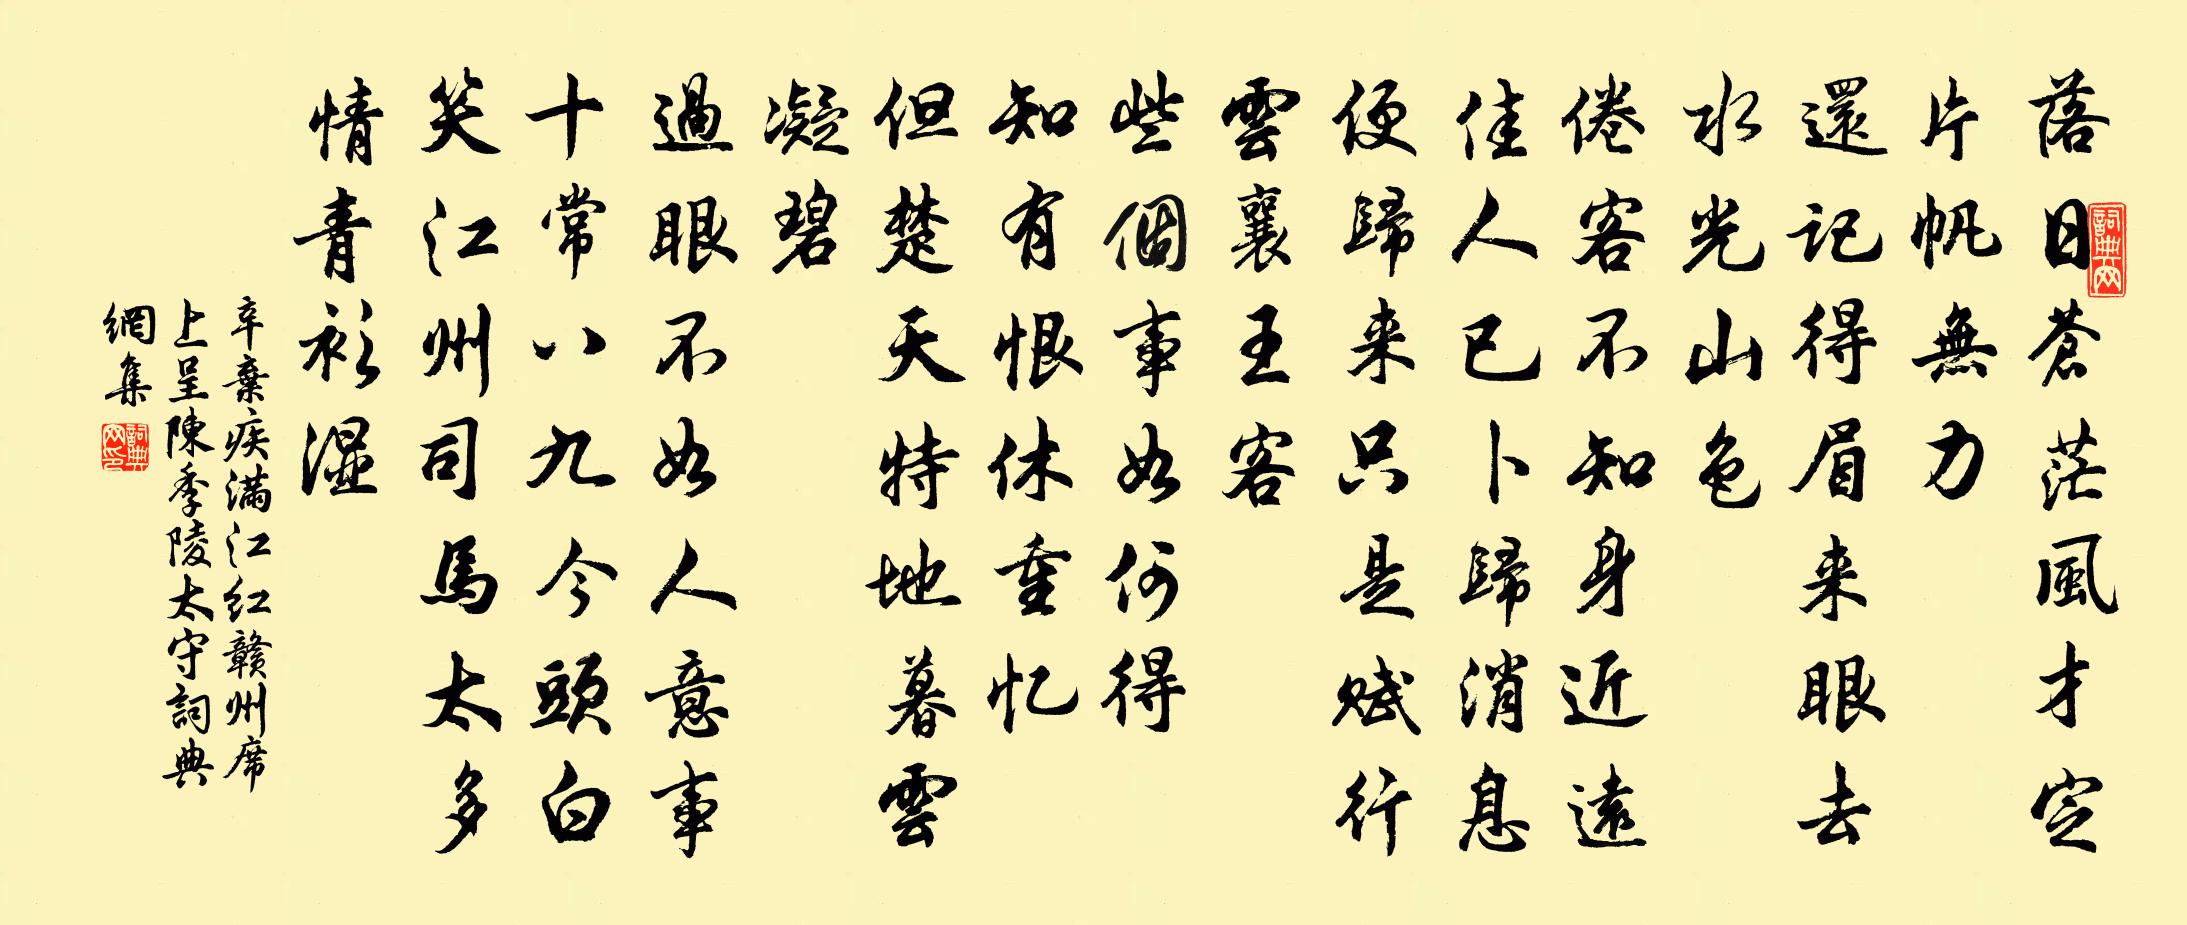 落日蒼茫風才定
片帆無力
還记得眉来眼去
水光山色
倦客不知身近遠
佳人已卜歸消息
便歸来只是赋行
雲襄王客
些個事如何得
知有恨休重忆
但楚天特地暮雲
凝碧
過眼不如人意事
十常八九今頭白
笑江州司馬太多
情青衫濕
辛棄疾满江红赣州席
上呈陳季陵太守詞典
網集
詞典网
詞典网印